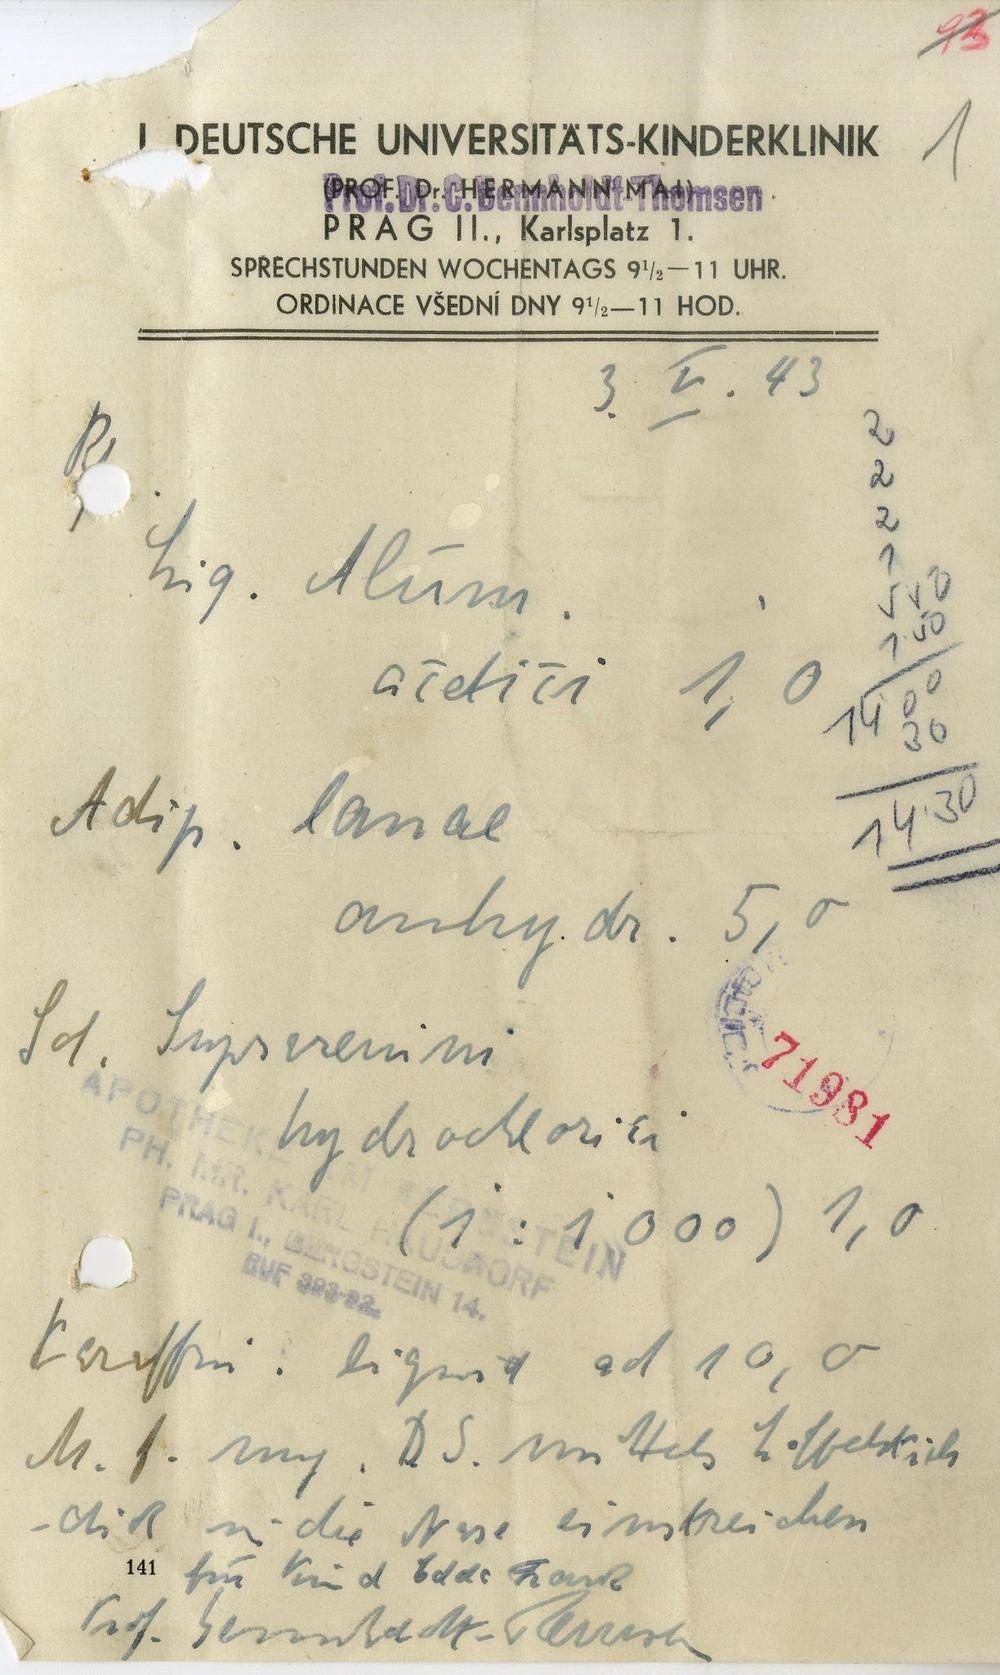 93
1
I. DEUTSCHE UNIVERSITÄTS-KINDERKLINIK
(PROF. Dr. HERMANN MAI)
Prof. Dr. C. Bennholdt-Thomsen
PRAG II., Karlsplatz 1.
SPRECHSTUNDEN WOCHENTAGS 9½—11 UHR.
ORDINACE VŠEDNÍ DNY 9½—11 HOD.
3. V. 43
Rp
2
2
2
1
5 50
1 50
14 00
30
14 30
Liq. Alum.
acetici 1,0
Adip. lanae
anhydr. 5,0
Sol. Suprarenini
hydrochlorici
(1 : 1000) 1,0
71981
APOTHEKE
PH. MR. KARL HAUSDORF
PRAG I., BERGSTEIN 14.
RUF
Paraffini. liquid ad 10,0
M. f. ung. D.S. mittels Löffelstiel
-dick in die Nase einstreichen
141
für Kind Edda Frank
Prof. Bennholdt-Thomsen